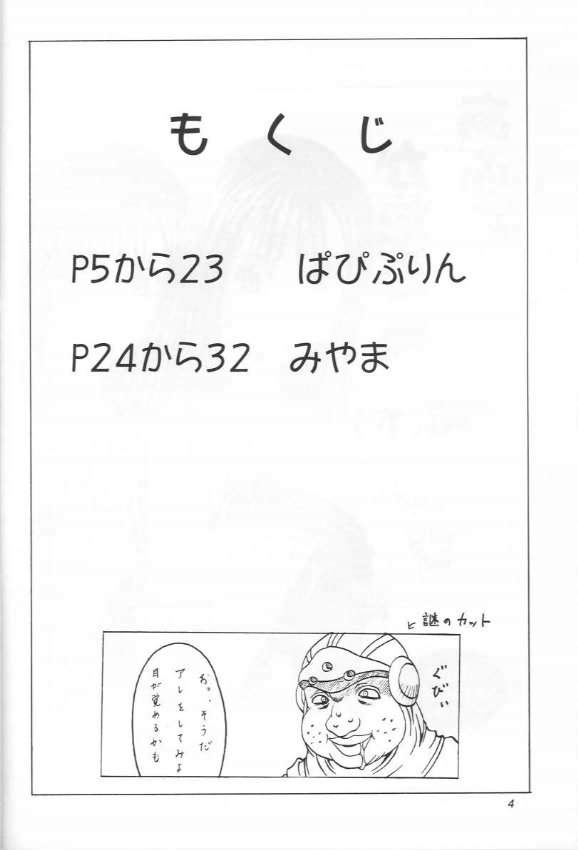 もくじ
P5から23　ぱぴぷりん
P24から32　みやま
謎のカット
ぐびぃ
お、そうだ
アレをしてみよ
目が覚めるかも
4